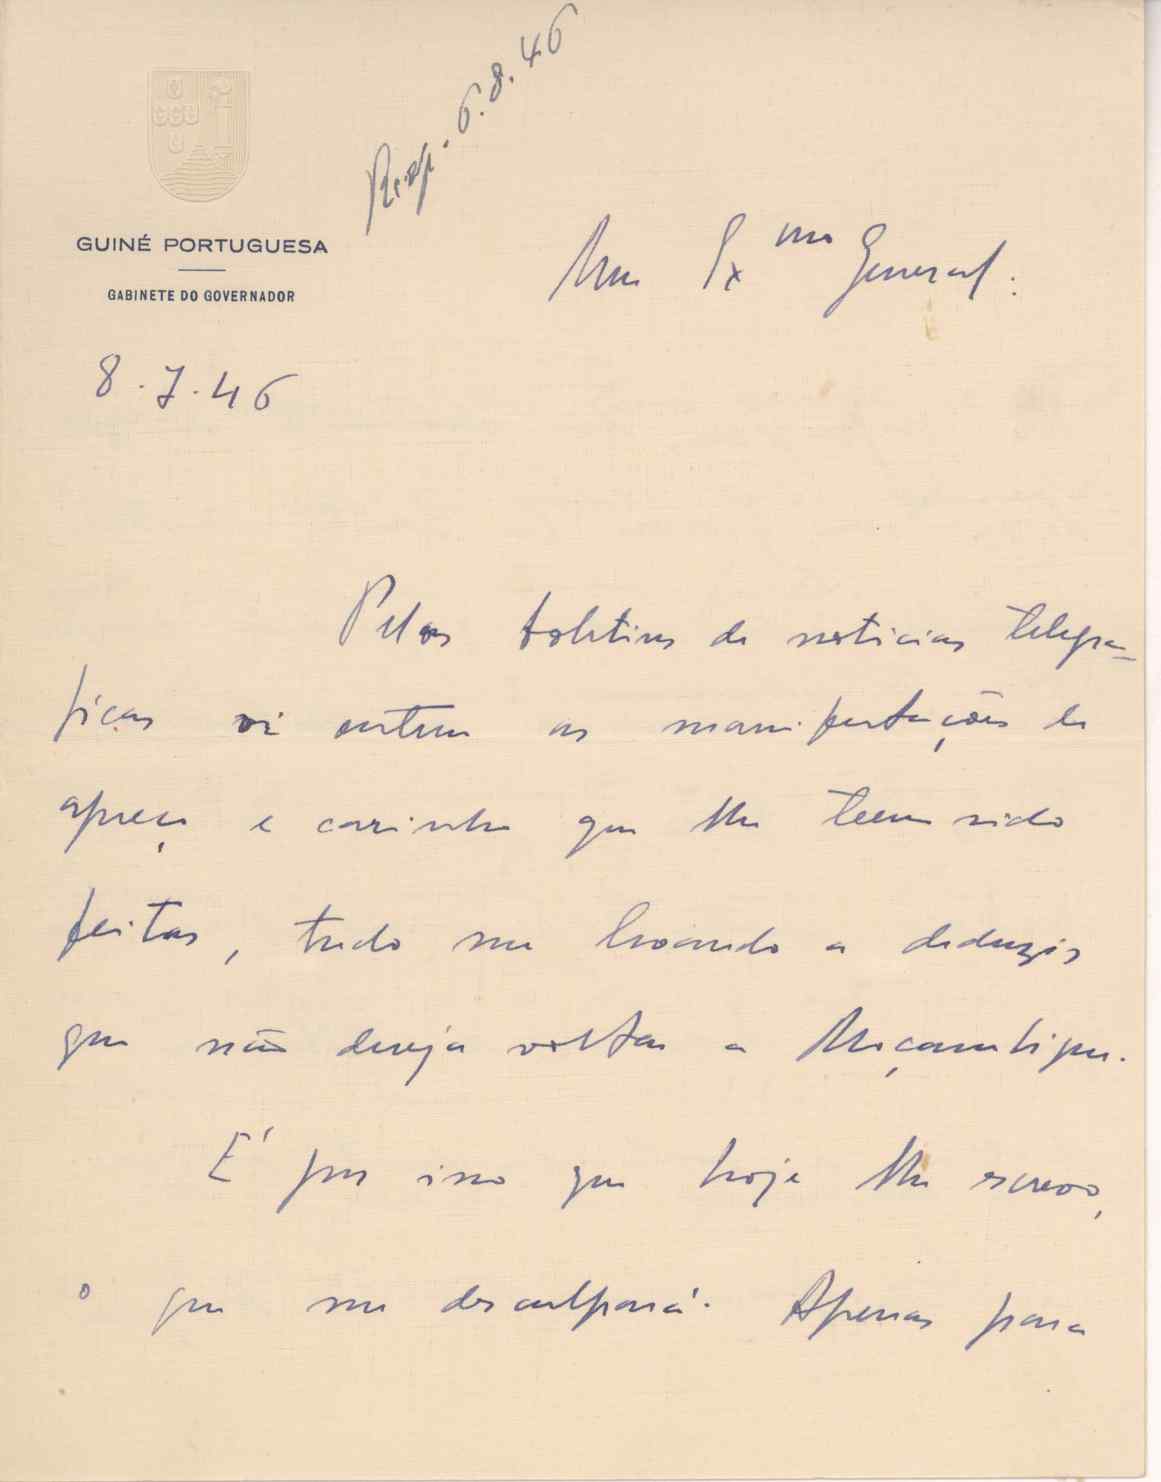 Resp. 6.8.46
GUINÉ PORTUGUESA
GABINETE DO GOVERNADOR
Meu Exmo General:
8.7.46
Pelos boletins de noticias telegra-
ficas vi ontem as manifestações de
apreço e carinho que lhe teem sido
feitas, tudo me levando a deduzir
que não deseja voltar a Moçambique.
É por isso que hoje lhe escrevo,
o que me desculpará. Apenas para